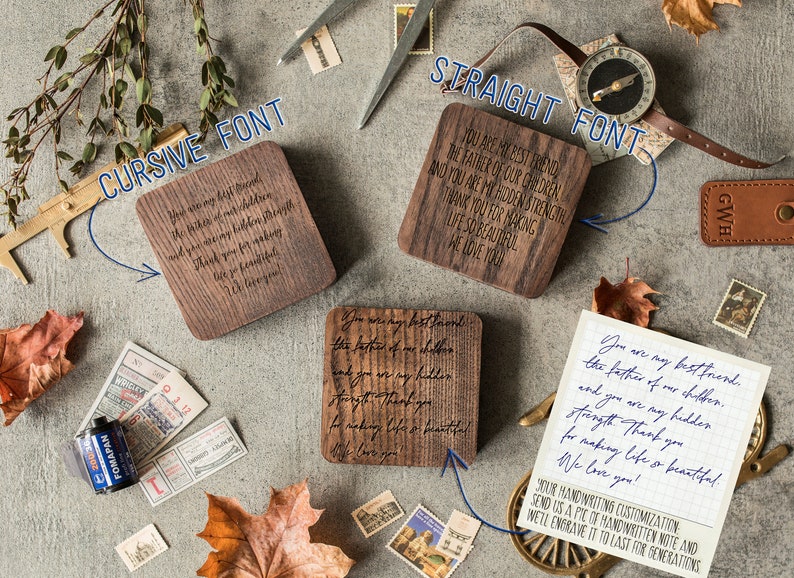 CURSIVE FONT
STRAIGHT FONT
You are my best friend,
the father of our children,
and you are my hidden strength.
Thank you for making
life so beautiful.
We love you!
YOU ARE MY BEST FRIEND,
THE FATHER OF OUR CHILDREN,
AND YOU ARE MY HIDDEN STRENGTH.
THANK YOU FOR MAKING
LIFE SO BEAUTIFUL.
WE LOVE YOU!
GWH
You are my best friend,
the father of our children,
and you are my hidden
strength. Thank you
for making life so beautiful.
We love you!
You are my best friend,
the father of our children,
and you are my hidden
strength. Thank you
for making life so beautiful.
We love you!
YOUR HANDWRITING CUSTOMIZATION:
SEND US A PIC OF HANDWRITTEN NOTE AND
WE'LL ENGRAVE IT TO LAST FOR GENERATIONS
FOMAPAN